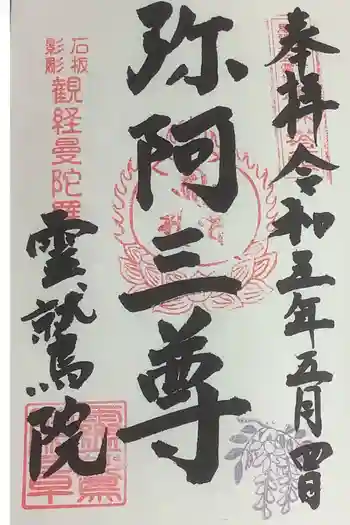 奉拝 令和五年五月四日
弥阿三尊
石板
影彫
観経曼陀羅
霊鷲院